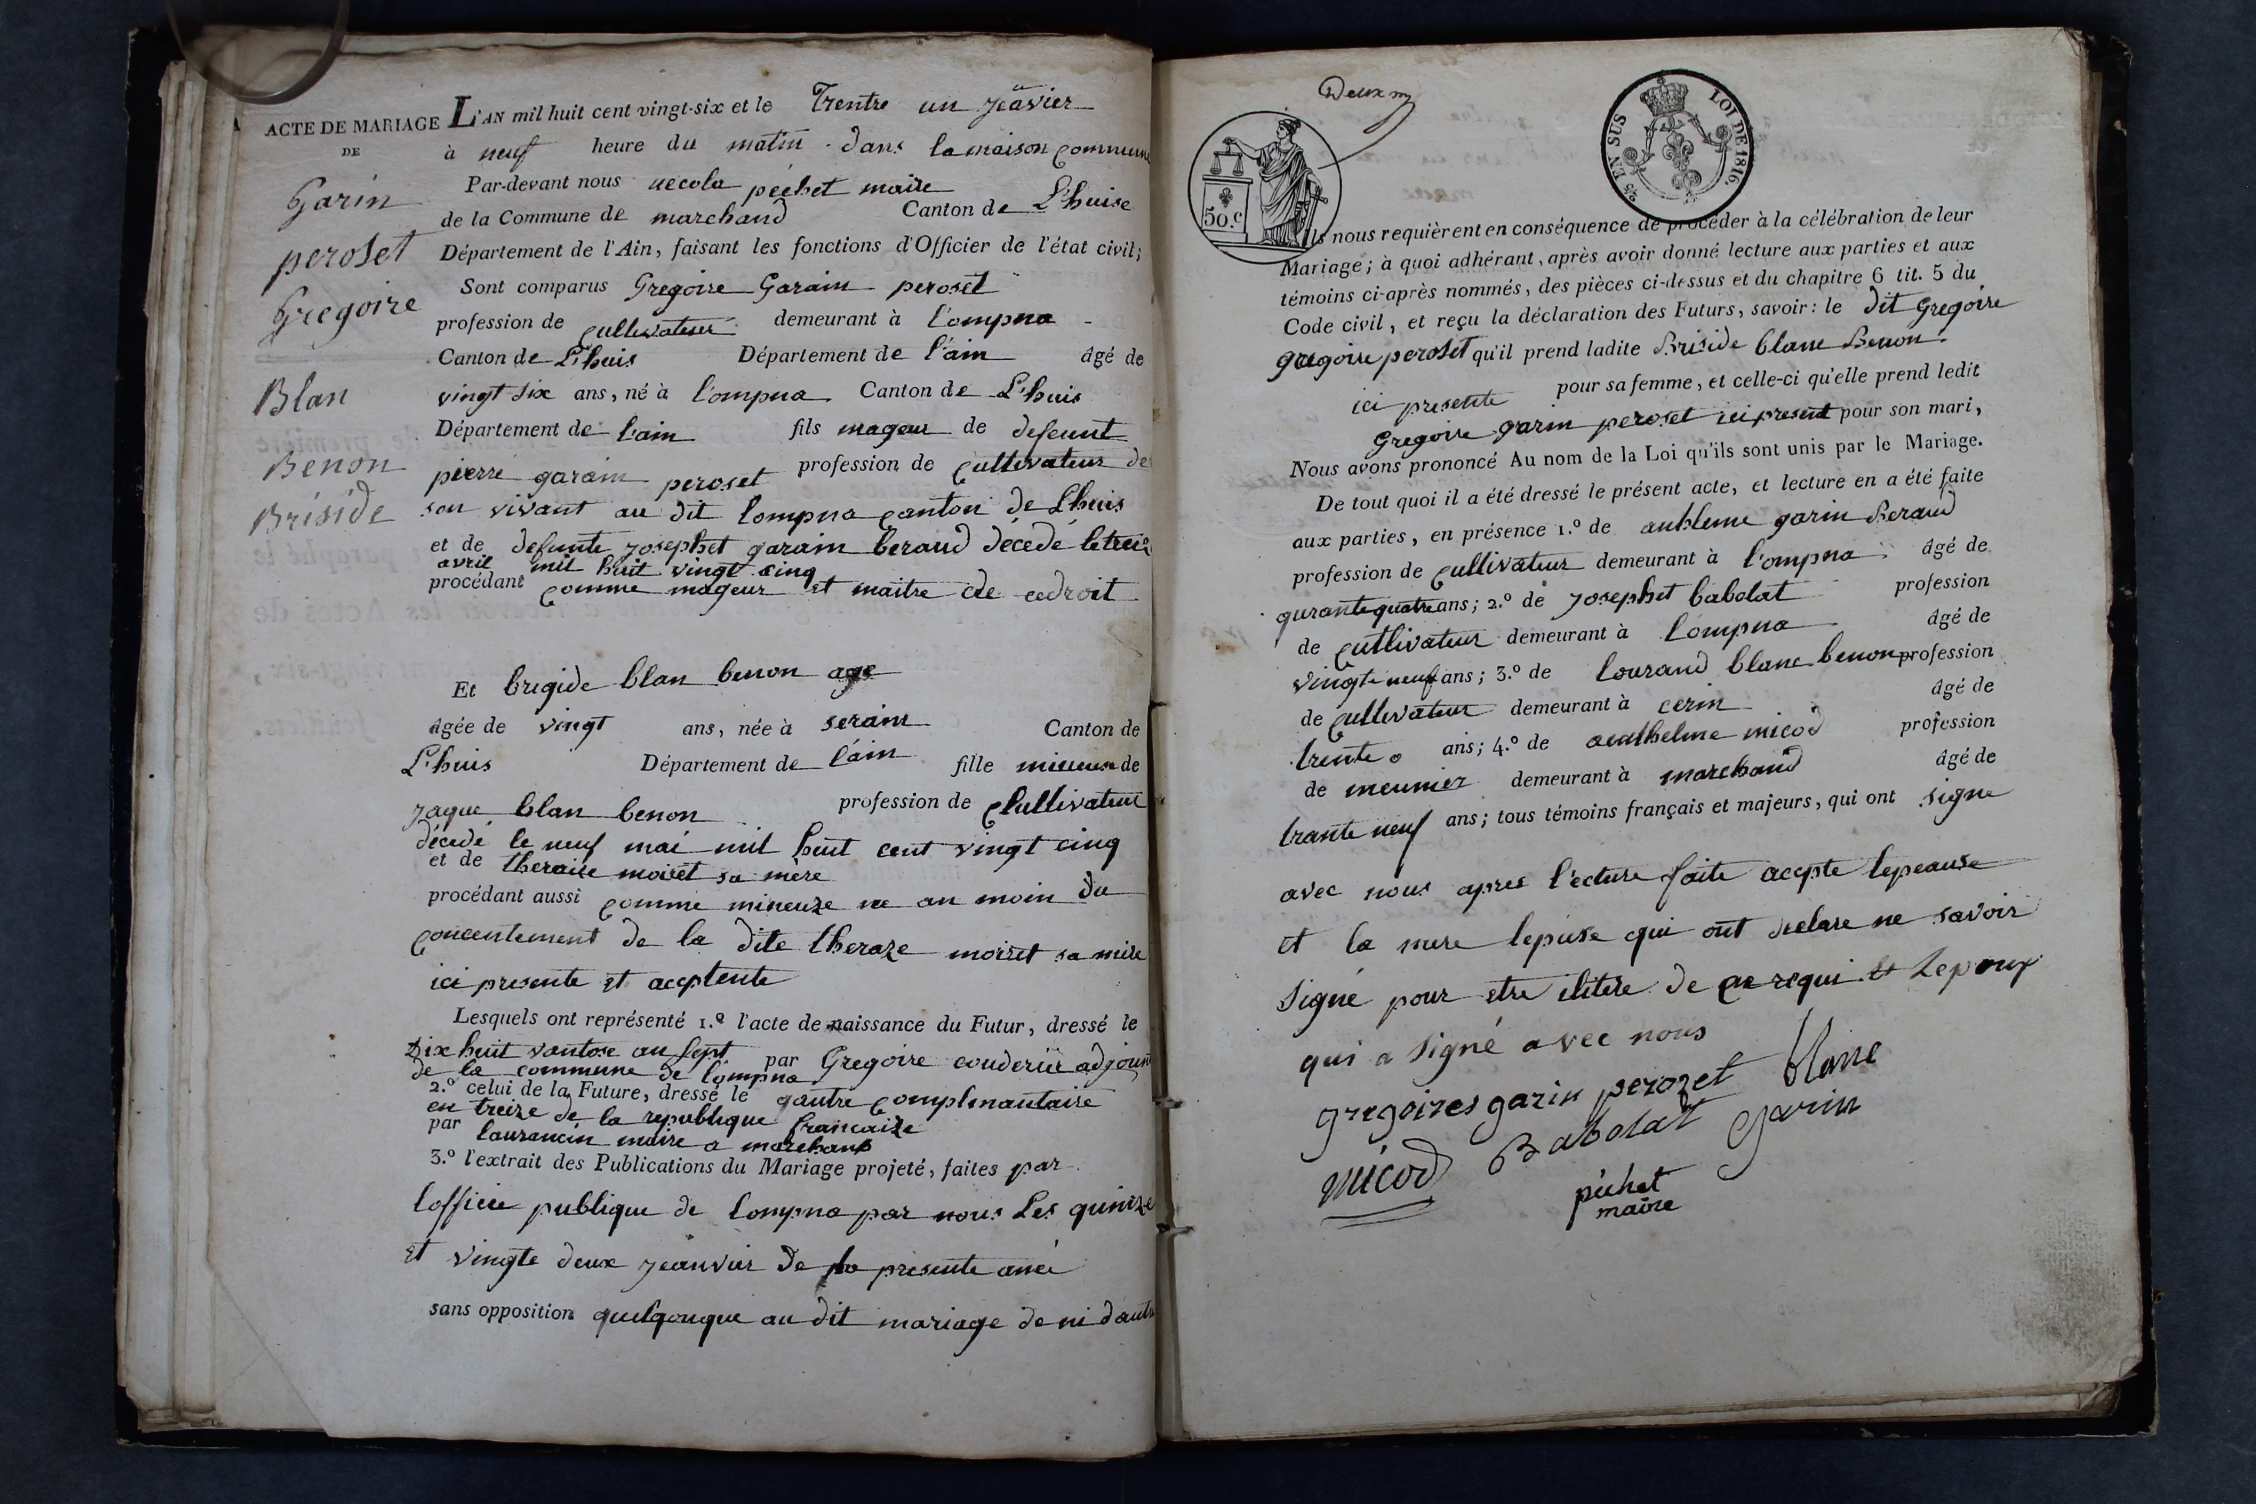 ACTE DE MARIAGE
DE
Garin
peroset
Gregoire
Blan
Benon
Briside
L'AN mil huit cent vingt-six et le Trentre un jeavier
à neuf heure du matin dans la maison commune
Par-devant nous necola péchet maire
de la Commune de marchand Canton de L'huise
Département de l'Ain, faisant les fonctions d'Officier de l'état civil;
Sont comparus Gregoire Garain peroset
profession de cultivateur demeurant à Lompna
Canton de L'huis Département de l'ain âgé de
vingt six ans, né à Lompna Canton de L'huis
Département de l'ain fils mageur de defeunt
pierre garain peroset profession de cultivateur de
son vivant au dit Lompna canton de Lhuis
et de defunte josephet garain beraud décedé le
avril mil huit vingt cinq
procédant comme mageur et maitre de cedroit
Et brigide blan benon age
âgée de vingt ans, née à serain Canton de
L'huis Département de l'ain fille de
jaque blan benon profession de Cultivateur
décedé le neuf mai mil huit cent vingt cinq
et de theraise moiret sa mère
procédant aussi comme mineuze ne an moin du
concentement de la dite theraze moiret sa mere
ici presente et acceptente
Lesquels ont représenté 1.º l'acte de naissance du Futur, dressé le
Dix huit vantose an sept par Gregoire couderie adjoint
de la commune de Lompna
2.º celui de la Future, dressé le qautre complmantaire
en treize de la republique francaize
par laurancin maire a marchand
3.º l'extrait des Publications du Mariage projeté, faites par
lofficie publique de Lompna par nous Les quinze
et vingte deux jeanvier de la presente aneé
sans opposition quelqonque au dit mariage de ni dautre
Deux
50.c
LOI DE 1816.
EN SUS
Ils nous requièrent en conséquence de procéder à la célébration de leur
Mariage; à quoi adhérant, après avoir donné lecture aux parties et aux
témoins ci-après nommés, des pièces ci-dessus et du chapitre 6 tit. 5 du
Code civil, et reçu la déclaration des Futurs, savoir: le dit Gregoire
gregoire peroset qu'il prend ladite Briside blanc Benon
ici presente pour sa femme, et celle-ci qu'elle prend ledit
Gregoire garin peroset ici present pour son mari,
Nous avons prononcé Au nom de la Loi qu'ils sont unis par le Mariage.
De tout quoi il a été dressé le présent acte, et lecture en a été faite
aux parties, en présence 1.º de anthleme garin Beraud
profession de cultivateur demeurant à Lompna âgé de
qurante quatre ans; 2.º de josephet babolat profession
de cutlivateur demeurant à Lompna âgé de
vingte neuf ans; 3.º de lourand blanc benon profession
de cultivateur demeurant à cerin âgé de
trente ans; 4.º de anthelme micod profession
de meunier demeurant à marchand âgé de
trante neuf ans; tous témoins français et majeurs, qui ont signe
avec nous apres l'ecture faite accpte lepeause
et la mere lepuse qui ont declare ne savoir
signé pour etre elitere de ce requi et Lepoux
qui a signé avec nous
gregoires garin perozet blanc
micod Babolat Garin
péchet
maire